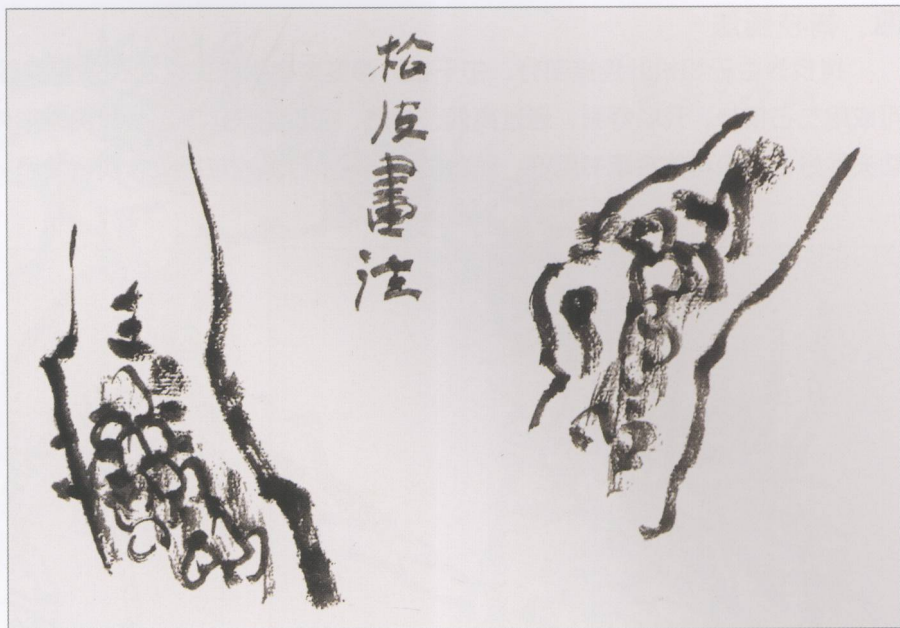 松皮畫法